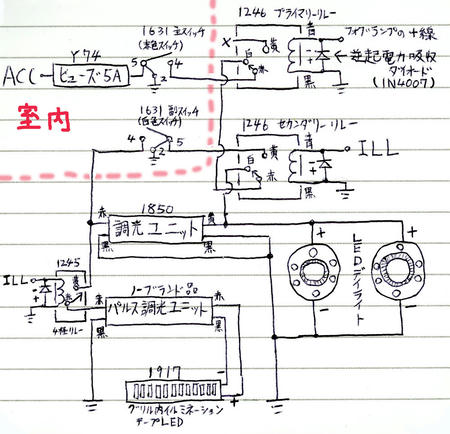 1246 プライマリーリレー
1631 主スイッチ
(赤色スイッチ)
青
フォグランプの+線
Y74
ACC
ヒューズ5A
5
4
2
X
黄
白
赤
黒
逆起電力吸収
ダイオード
(1N4007)
室内
1631 副スイッチ
(白色スイッチ)
4
5
2
1246 セカンダリーリレー
青
黄
白
赤
黒
ILL
1850
赤
調光ユニット
黄
黒
+
+
LEDデイライト
−
−
1245
ILL
青
黄
赤
黒
4極リレー
ノーブランド品
赤
パルス調光ユニット
赤
黒
黒
1917
−
+
グリル内イルミネーション
テープLED